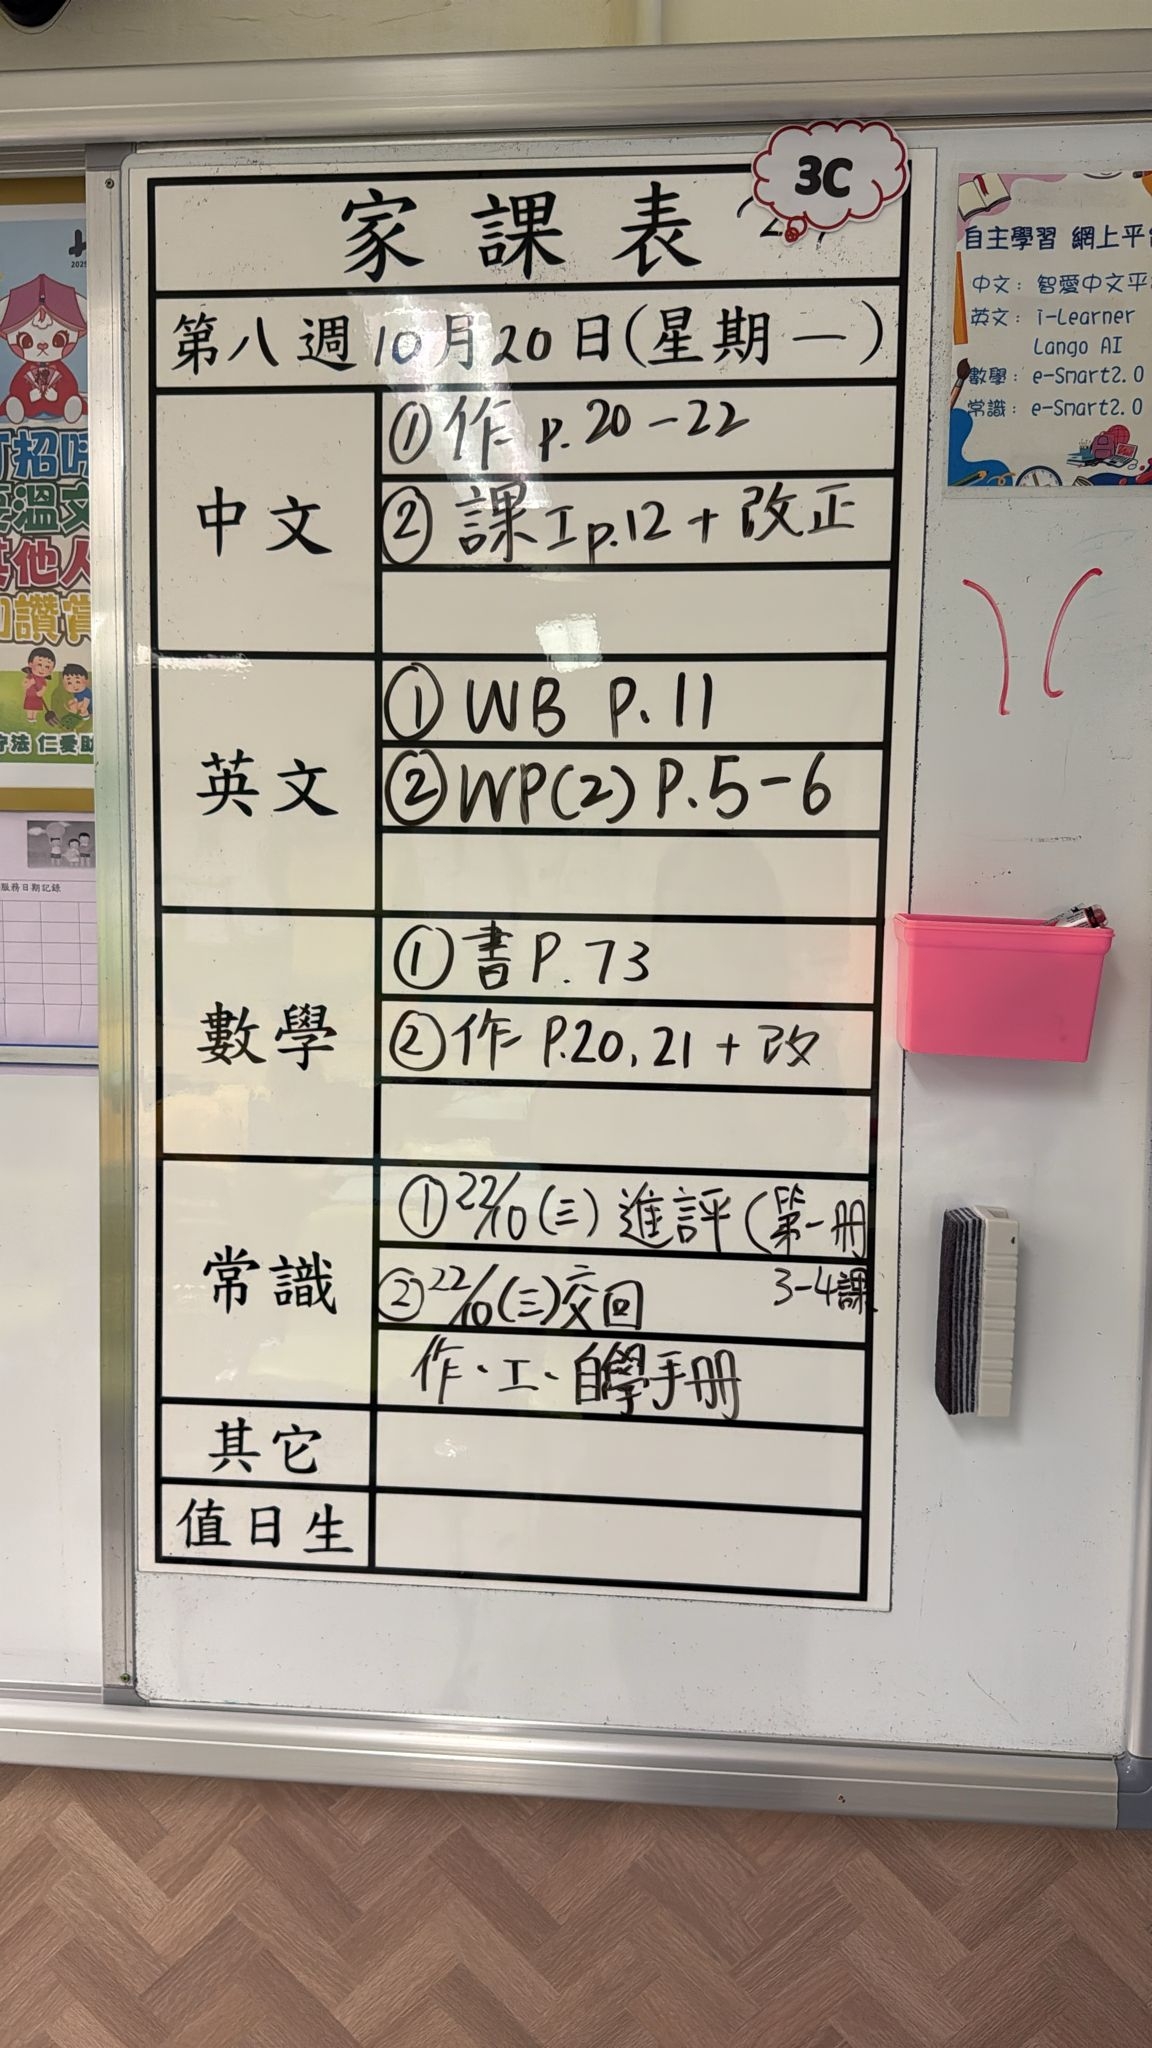 3C
家課表
第八週10月20日(星期一)
中文
①作 p.20-22
②課工p.12+改正
英文
①WB P.11
②WP(2) P.5-6
數學
①書P.73
②作 P.20,21+改
常識
①22/10(三)進評(第一冊
3-4課
②22/10(三)交回
作、工、自學手冊
其它
值日生
自主學習 網上平
中文: 智愛中文平
英文: i-Learner
Lango AI
數學: e-Smart2.0
常識: e-Smart2.0
招呼
溫文
其他人
讚賞
守法 仁愛
服務日期記錄